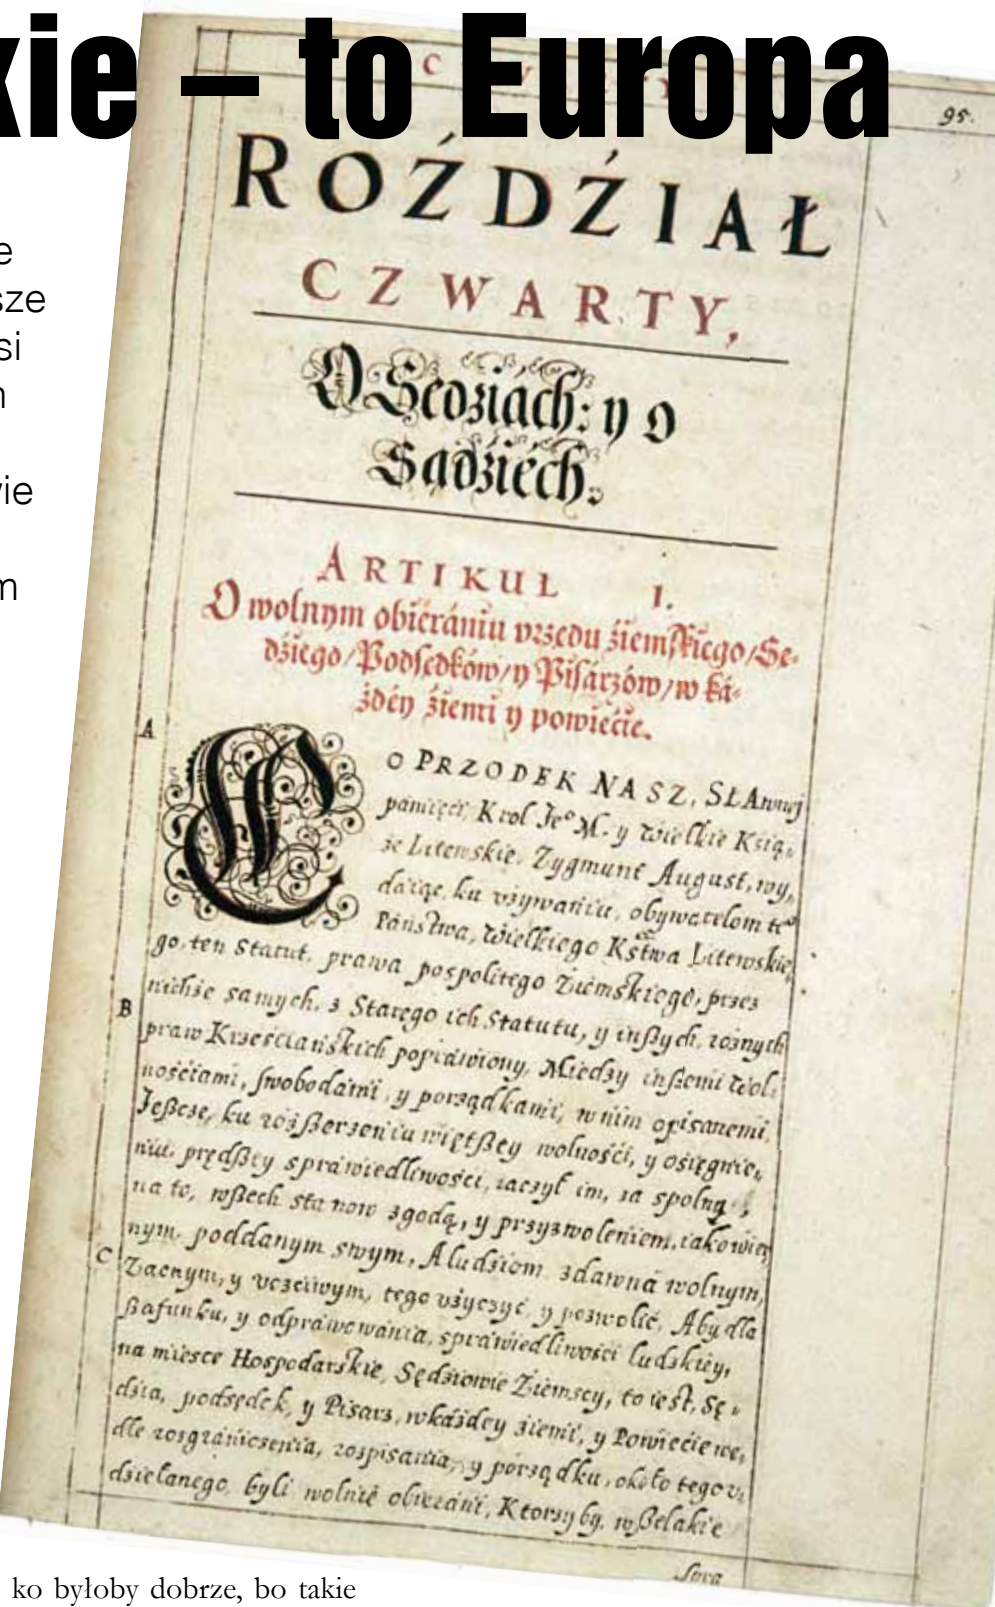 kie – to Europa
e
sze
si
n
wie
m
95.
ROŹDŹIAŁ
CZWARTY,
O Sędziách: y o
Sądźiéch.
ARTIKUŁ 1.
O wolnym obiérániu vrzędu źiemskiego/Sę-
dźiego/Podsędków/y Pisárzów/w ká-
żdéy źiemi y powiećie.
A
WO PRZODEK NASZ, SŁAwnej
pamięći, Krol Jeº M. y Wielkie Ksią,
że Litewskie, Zygmunt August, wy,
daiąc, ku vżywaniu, obywatelom te°
Państwa, Wielkiego Kstwa Litewskie,
go, ten Statut, prawa pospolitego Ziemskiego, przez
nichże samych, z Starego ich Statutu, y inßych, roznych
B
praw Krześciańskich popráwiony, Miedzy inßemi Wol:
nośćiami, swobodami, y porządkami, w nim opisanemi,
Jeßcze, ku rozßerzeniu więtßey wolnośći, y ośięgnie,
niu, prędßey spráwiedliwośći, raczył im, za spolną,
na to, wßech stanow zgodą, y przyzwoleniem, iako wier
nym, poddanym swym, A ludziom zdawná wolnym,
C
Zacnym, y vczćiwym, tego vżyczyć, y pozwolić, Aby dla
ßafunku, y odpráwowánia, spráwiedliwośći ludzkiéy,
na miesce Hospodarskie, Sędźiowie Ziemscy, to iest, Sę,
dźia, podsędek, y Pisarz, w káżdey źiemi, y Powiećie we,
dle rozgraniczenia, rozpisania, y porządku, około tego v,
dziełanego, byli wolnie obieráni, Ktorzy by, wßelakie
Spra
ko byłoby dobrze, bo takie